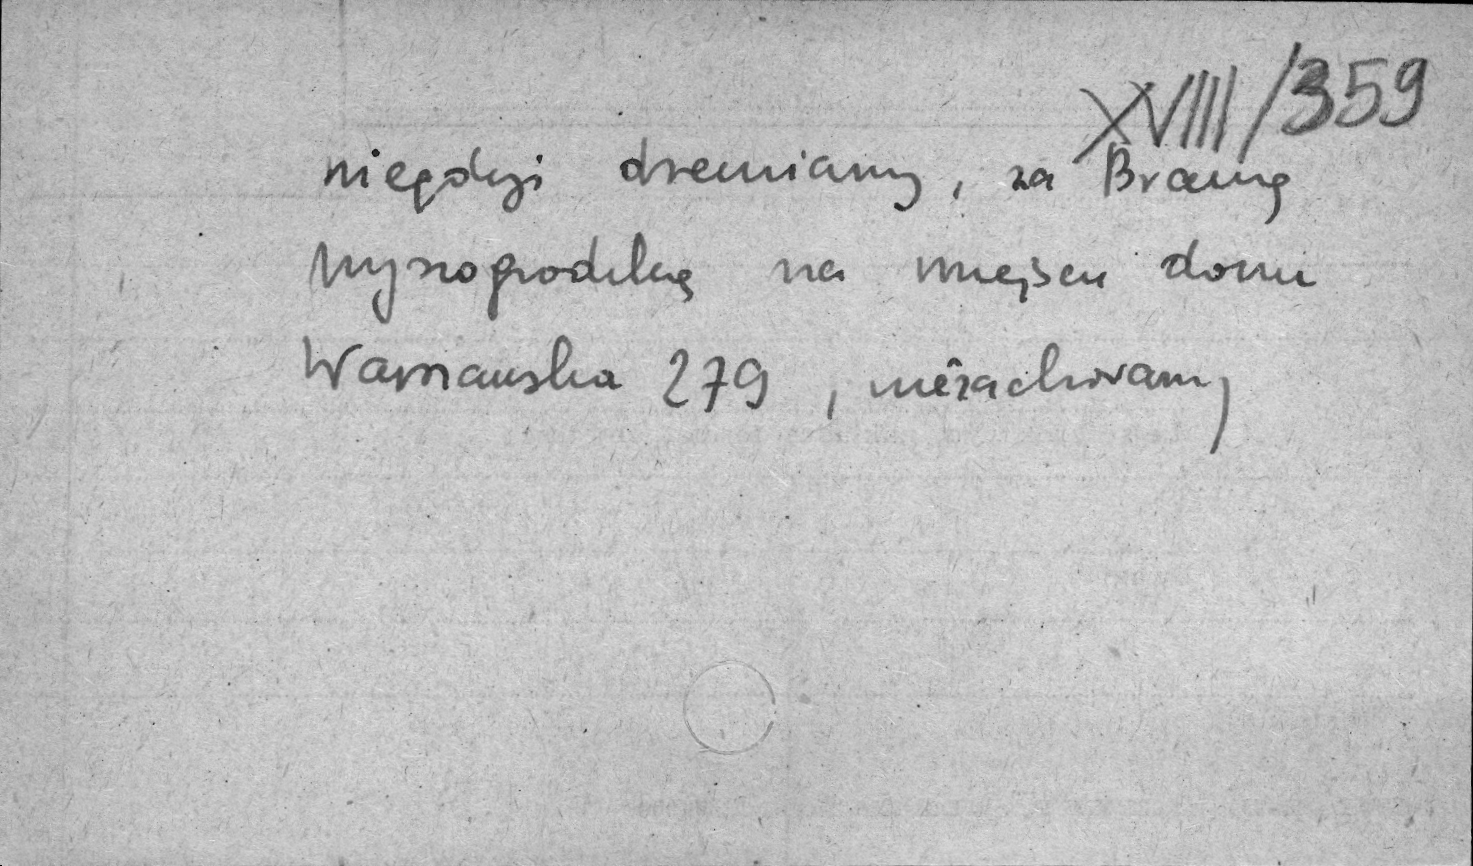 XVIII/359
niegdyś drewniany, za Bramą
Wyszogrodzką na miejscu domu
Warszawska 279, niezachowany